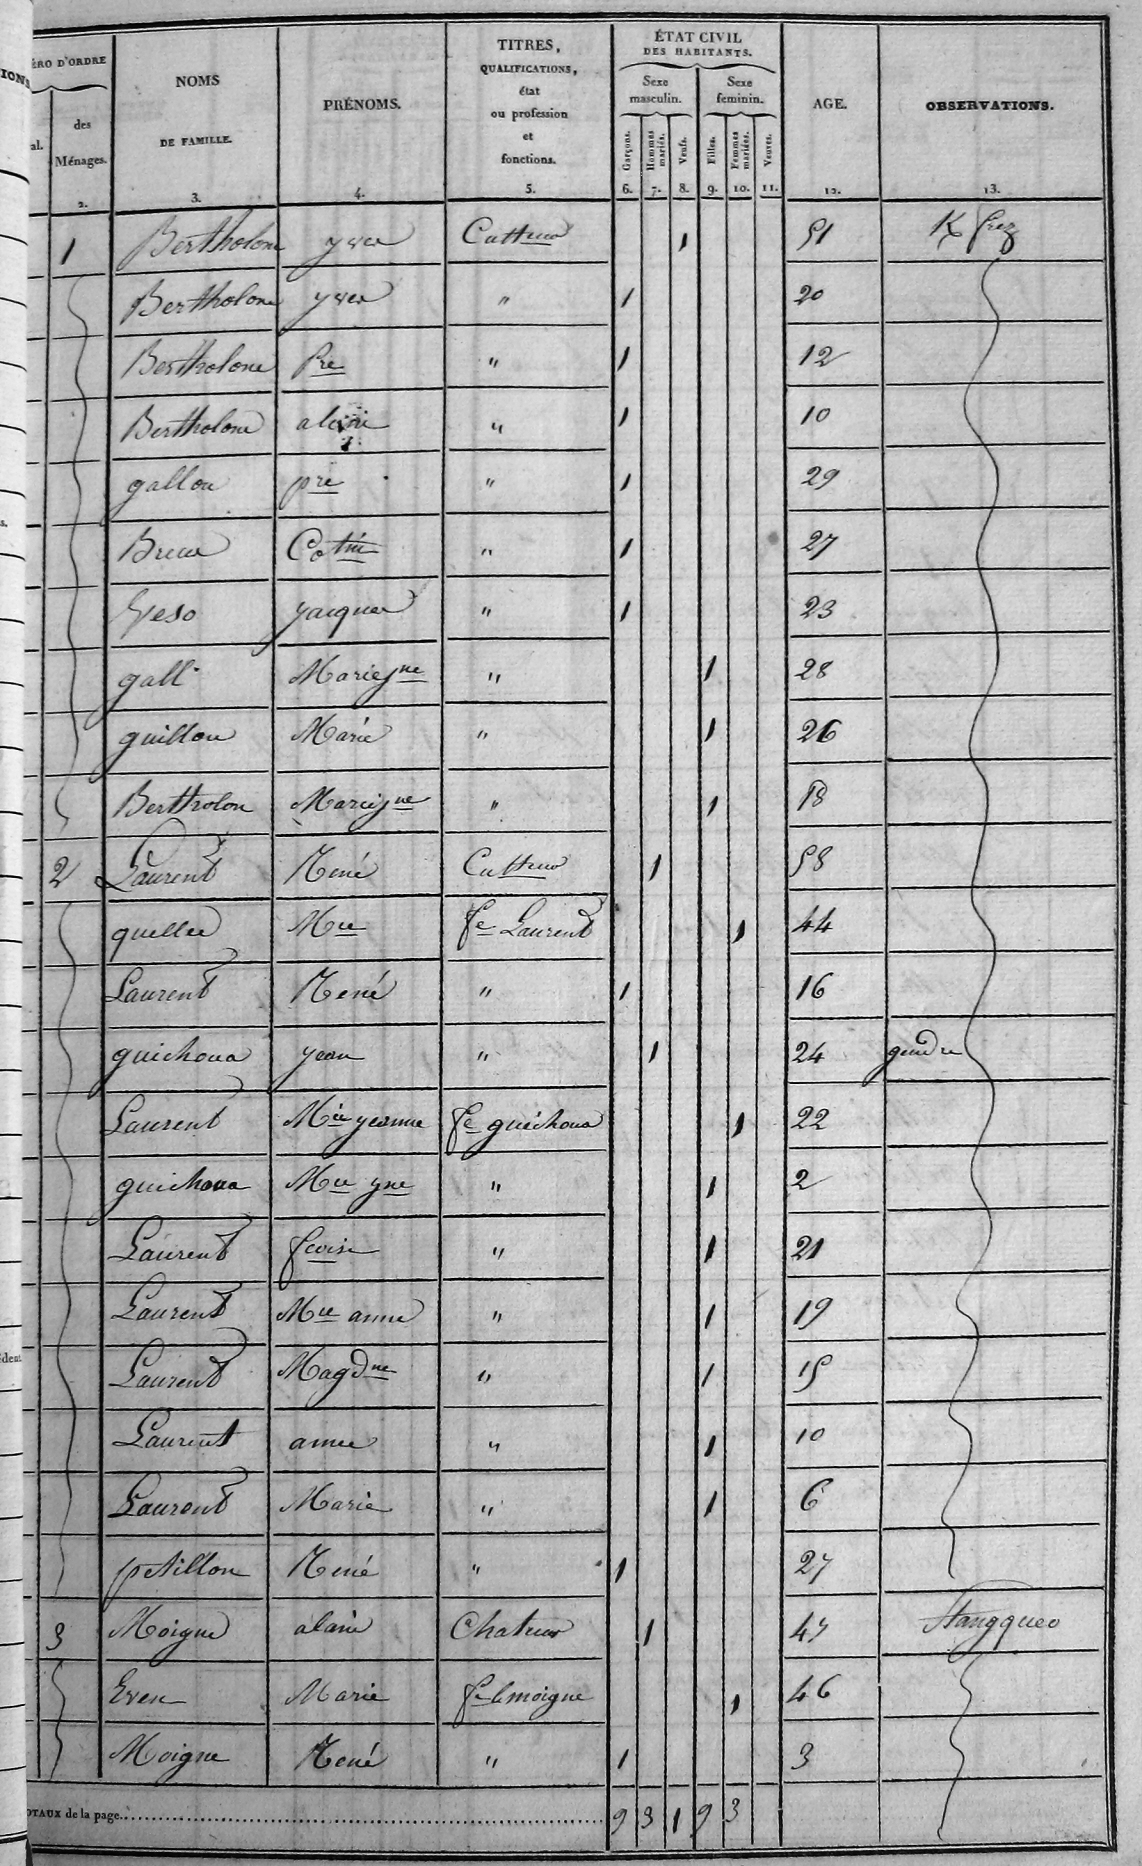 IONS
ÉRO D'ORDRE
al.
des
Ménages.
2.
NOMS
DE FAMILLE.
3.
PRÉNOMS.
4.
TITRES,
QUALIFICATIONS,
état
ou profession
et
fonctions.
5.
ÉTAT CIVIL
DES HABITANTS.
Sexe
masculin.
Sexe
feminin.
Garçons.
Hommes mariés.
Veufs.
Filles.
Femmes mariées.
Veuves.
6. 7. 8. 9. 10. 11.
AGE.
12.
OBSERVATIONS.
13.
1 Bertholom yves Cultteur 1 51 K frez
Bertholom yves " 1 20
Bertholom Pre " 1 12
Bertholom " 1 10
gallou pre " 1 29
" 1 27
yacques " 1 23
gall Marie jne " 1 28
guillou Marie " 1 26
Bertholom Marie jne " 1 18
2 Laurent René Cultteur 1 58
quellec Mie fe Laurent 1 44
Laurent René " 1 16
guichoua yean " 1 24 gendre
Laurent Mie yeanne fe guichoua 1 22
guichoua Mie yne " 1 2
Laurent fcoise " 1 21
Laurent Mie anne " 1 19
Laurent Magdne " 1 15
Laurent anne " 1 10
Laurent Marie " 1 6
petillon René " 1 27
3 Moigne alain 1 47 Stangqueo
Even Marie fe le moigne 1 46
Moigne René " 1 3
OTAUX de la page 9 3 1 9 3
s.
édent